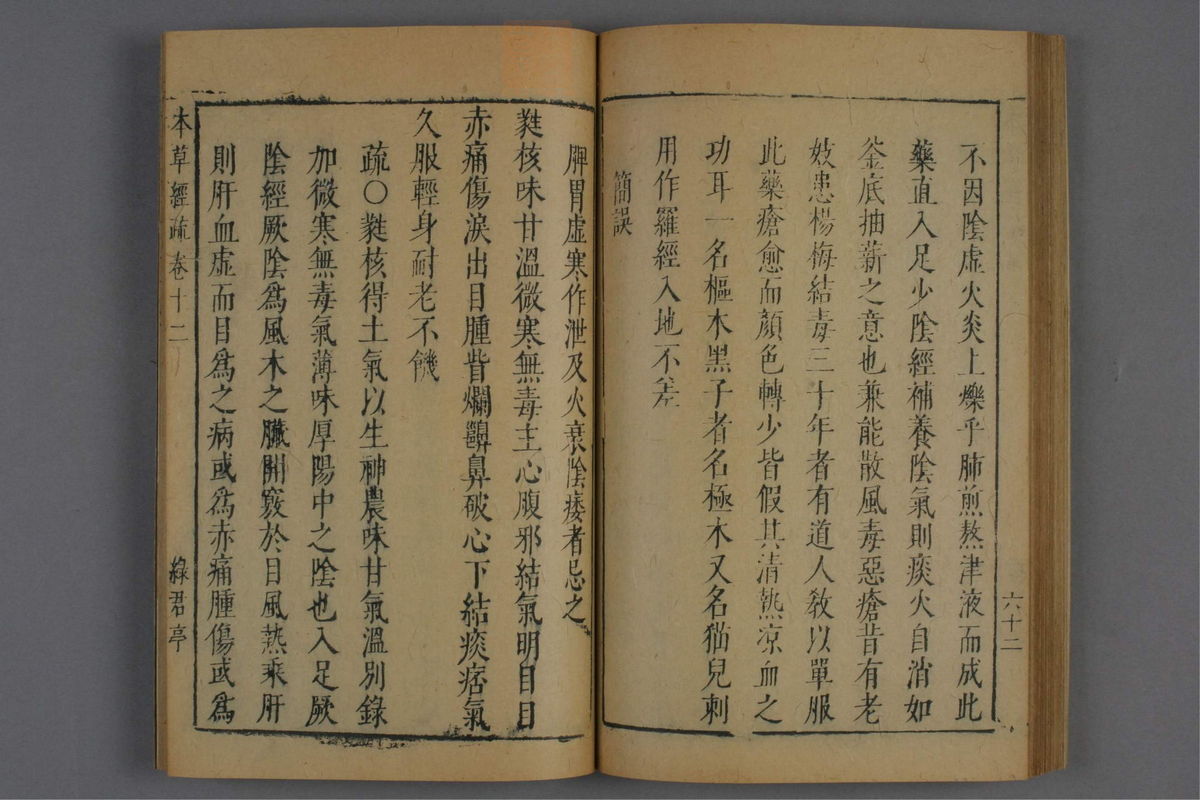 不因陰虛火炎上爍乎肺煎熬津液而成此
藥直入足少陰經補養陰氣則痰火自消如
釜底抽薪之意也兼能散風毒惡瘡昔有老
妓患楊梅結毒三十年者有道人教以單服
此藥瘡愈而顏色轉少皆假其清熱凉血之
功耳一名樞木黑子者名極木又名猫兒刺
用作羅經入地不差
簡誤
脾胃虛寒作泄及火衰陰痿者忌之
蕤核味甘溫微寒無毒主心腹邪結氣明目目
赤痛傷淚出目腫眥爛齆鼻破心下結痰痞氣
久服輕身耐老不饑
疏○蕤核得土氣以生神農味甘氣溫別錄
加微寒無毒氣薄味厚陽中之陰也入足厥
陰經厥陰爲風木之臟開竅於目風熱乘肝
則肝血虛而目爲之病或爲赤痛腫傷或爲
本草經疏 卷十二 綠君亭
六十二